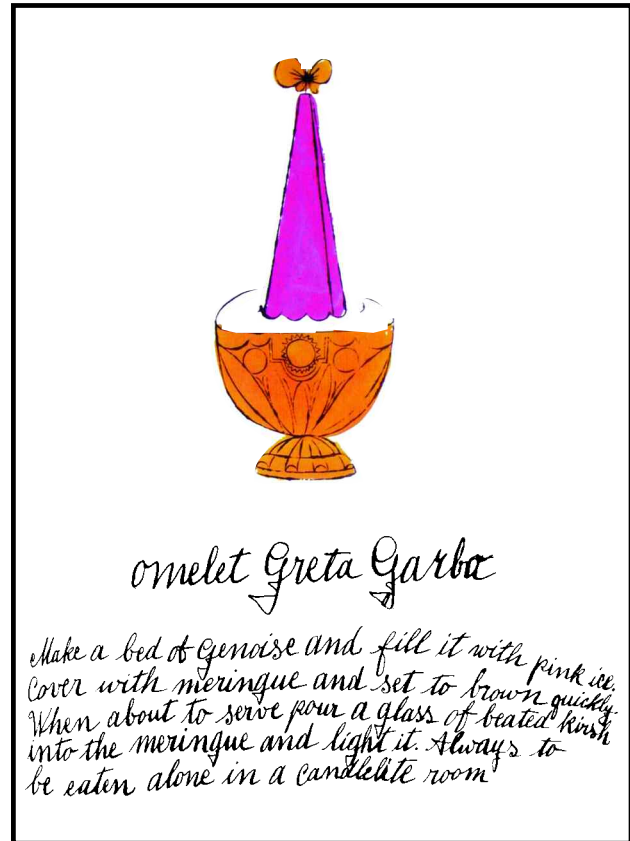 omelet Greta Garbo
Make a bed of Genoise and fill it with pink ice.
Cover with meringue and set to brown quickly.
When about to serve pour a glass of beated kirsh
into the meringue and light it. Always to
be eaten alone in a candlelite room